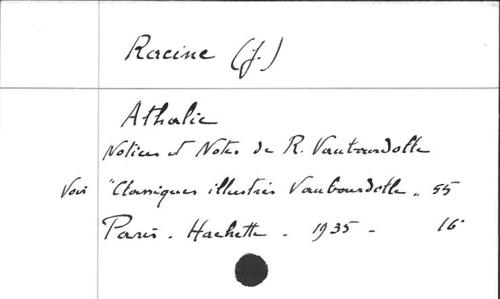 Racine (J.)
Athalie
Notices et Notes de R. Vaubourdolle
Voir "Classiques illustrés Vaubourdolle" 55
Paris - Hachette - 1935 - 16°